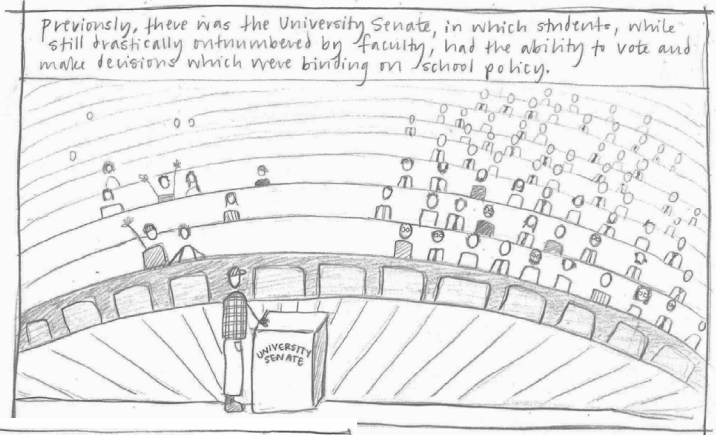 Previously, there was the University Senate, in which students, while
still drastically outnumbered by faculty, had the ability to vote and
make decisions which were binding on school policy.
UNIVERSITY
SENATE